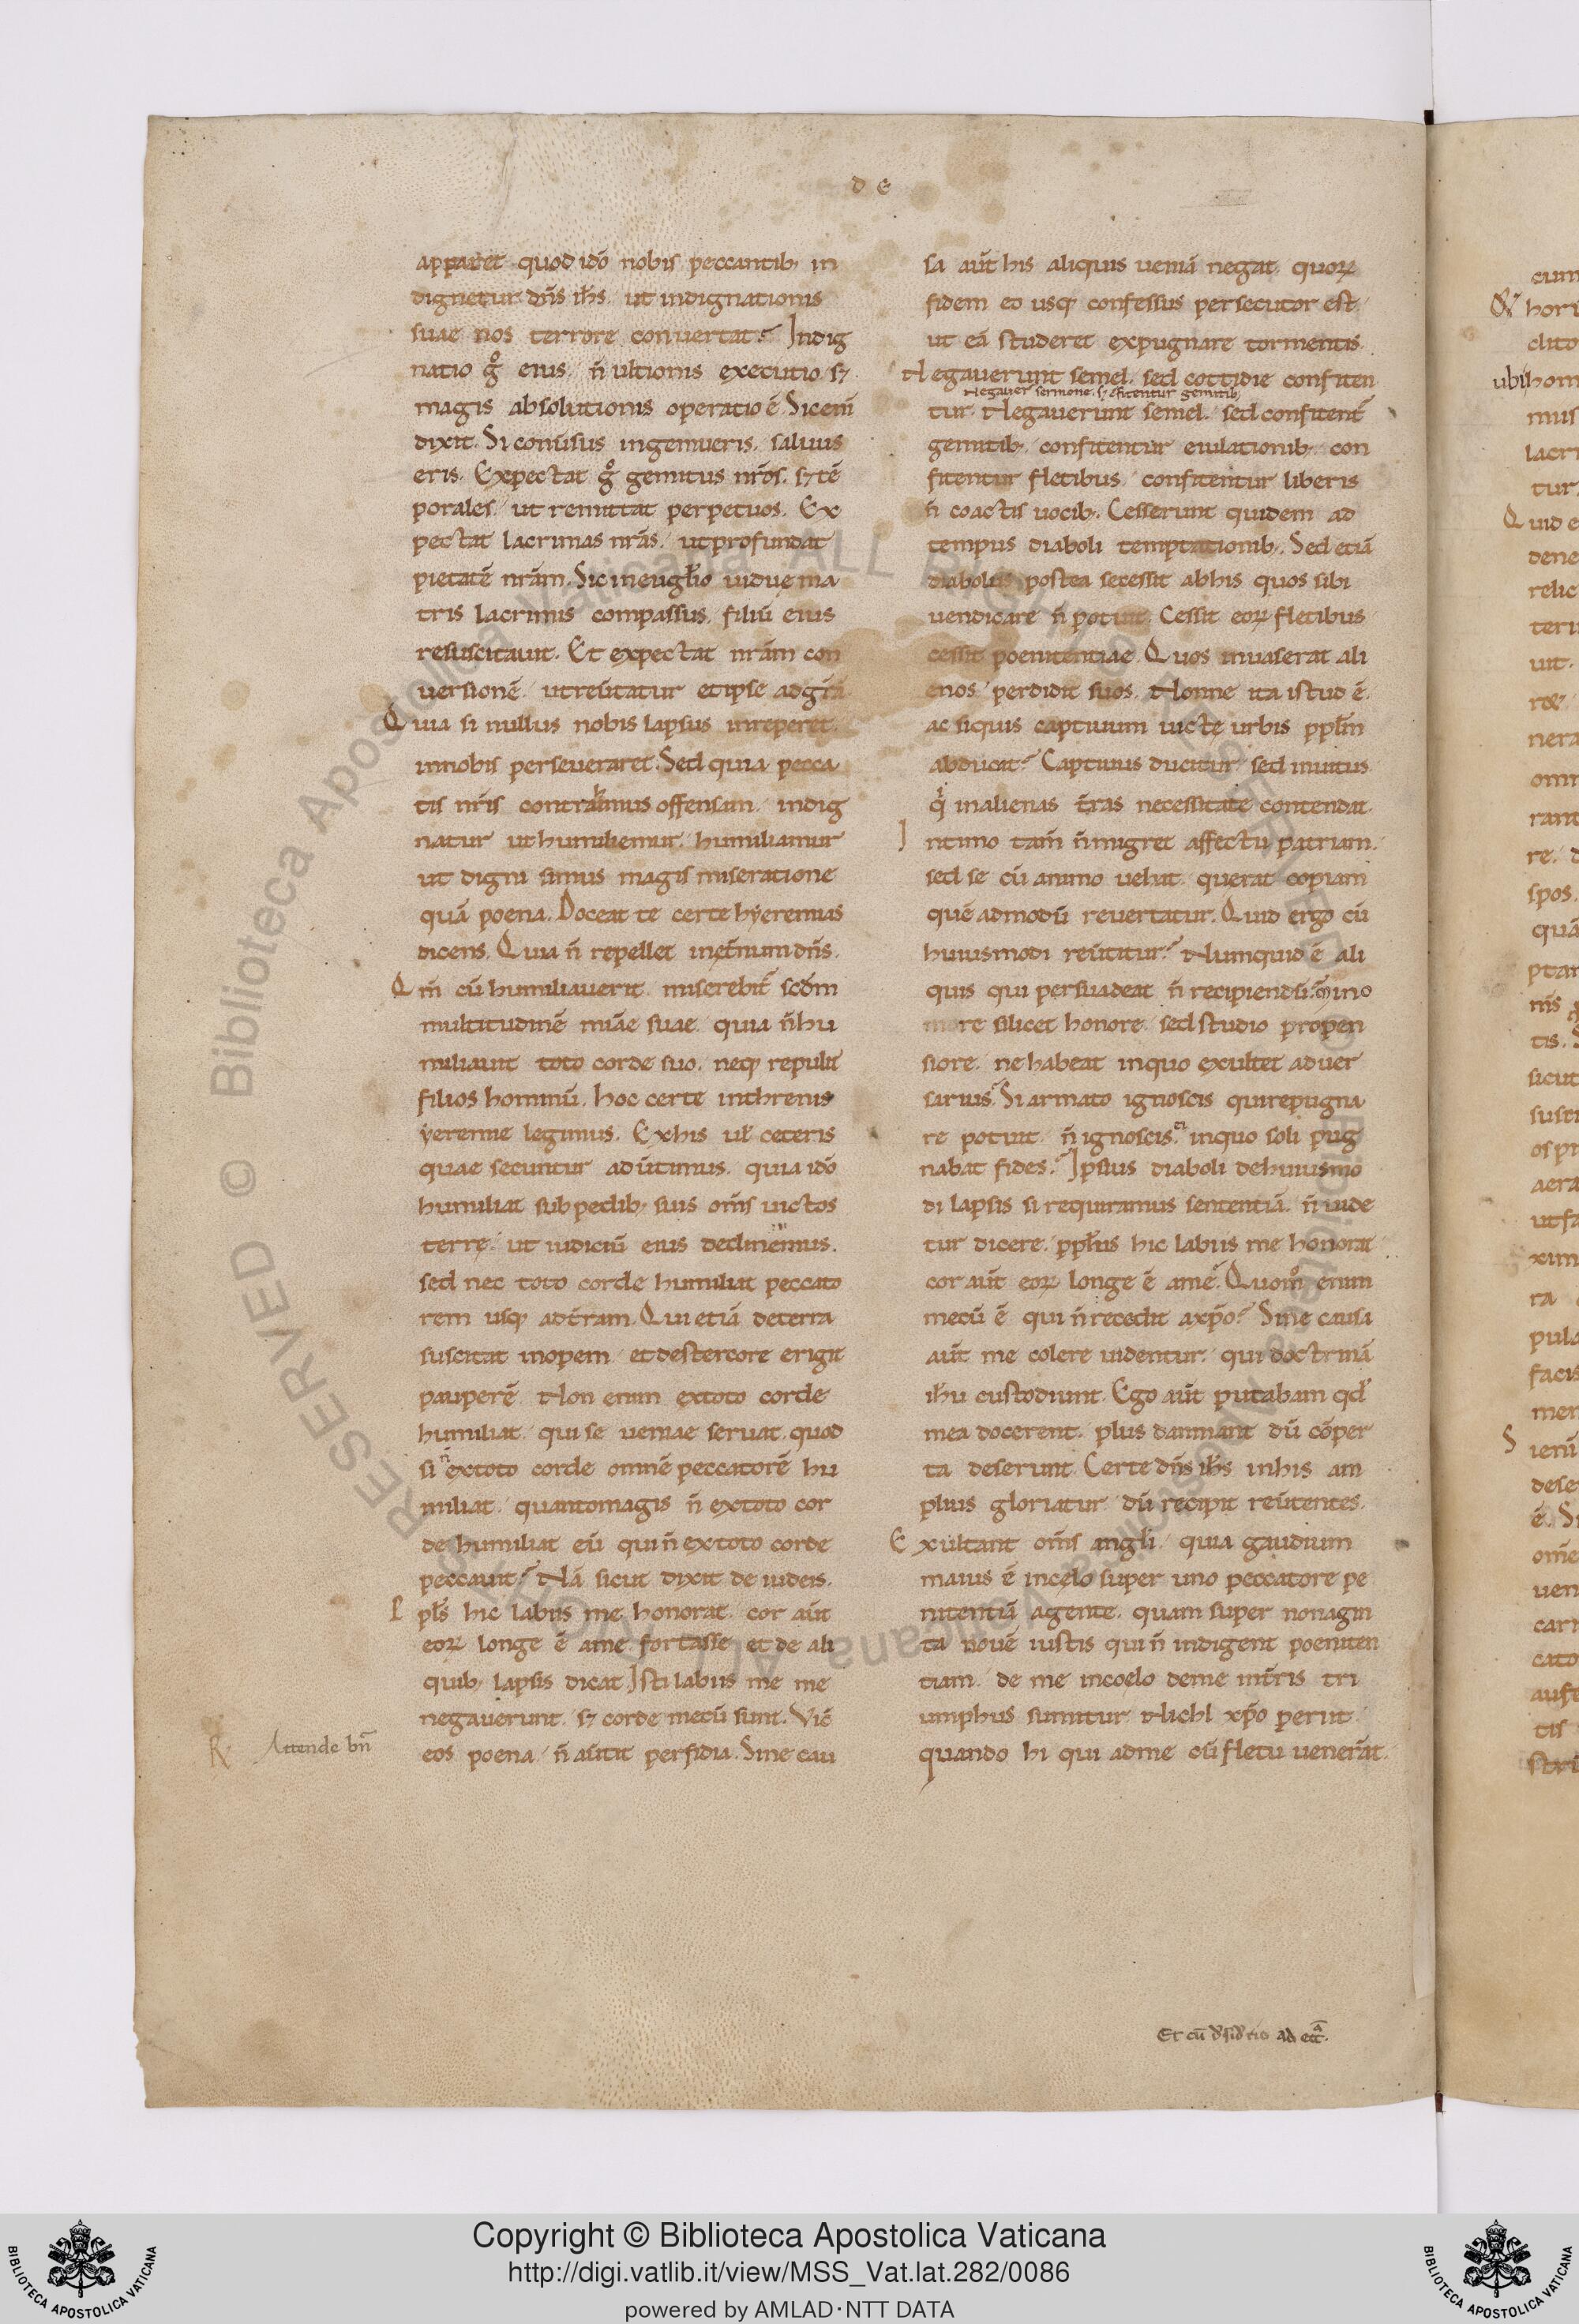 D E
apparet quod idō nobis peccantib; in
dignetur dn̄s ih̄s. ut indignationis
suae nos terrore conuertat? Indig
natio gͦ eius. n̄ ultionis executio. sꝫ
magis absolutionis operatio ē. Sic enī
dixit. Si conūsus ingemueris. saluus
eris. Expectat gͦ gemitus nr̄os. sꝫ tē
porales. ut remittat perpetuos. Ex
pectat lacrimas nr̄as. ut profundat
pietatē nr̄am. Sic in eugl̄io uiduę ma
tris lacrimis compassus. filiū eius
resuscitauit. Et expectat nr̄am con
uersionē. ut reūtatur et ipse ad gr̄ā.
Quia si nullus nobis lapsus inreperet.
in nobis perseueraret. Sed quia pecca
tis nr̄is contraximus offensam. indig
natur ut humiliemur. humiliamur
ut digni simus magis miseratione
quā poena. Doceat te certe hyeremias
dicens. Quia n̄ repellet in ęt̄num dn̄s.
Qm̄ cū humiliauerit. miserebit᷑ scd̄m
multitudinē miāe suae. quia n̄ hu
miliauit toto corde suo. neq; repulit
filios hominū. hoc certe in threnis
yeremie legimus. Ex his ul̄ ceteris
quae secuntur adūtimus. quia idō
humiliat sub pedib; suis om̄s uictos
terrę. ut iudiciū eius declinemus.
sed nec toto corde humiliat peccato
rem usq; ad t̄ram. Qui etiā de terra
suscitat inopem et de stercore erigit
pauperē. Non enim ex toto corde
humiliat. qui se ueniae seruat. quod
si n̄ ex toto corde omnē peccatorē hu
miliat. quanto magis n̄ ex toto cor
de humiliat eū qui n̄ ex toto corde
peccauit? Nā sicut dixit de iudeis.
P pl̄s hic labiis me honorat. cor aūt
eorꝝ longe ē a me. fortasse et de ali
quib; lapsis dicat. Isti labiis me
negauerunt. sꝫ corde mecū sunt. Vic̄
eos poena. n̄ aūtit perfidia. Sine cau
Attende bn̄
sa aūt his aliquis ueniā negat. quorꝝ
fidem eo usq; confessus persecutor est.
ut eā studeret expugnare tormentis.
Negauerunt semel. sed cottidie confiten
Negauer̄ sermone. sꝫ ɔfitentur gemitib;
tur. Negauerunt semel. sed confitent᷑
gemitib;. confitentur eiulationib;. con
fitentur fletibus. confitentur liberis
n̄ coactis uocib;. Cesserunt quidem ad
tempus diaboli temptationib;. Sed etiā
diabolus postea secessit ab his quos sibi
uendicare n̄ potuit. Cessit eorꝝ fletibus
cessit poenitentiae. Quos inuaserat ali
enos. perdidit suos. Nonne ita istud ē.
ac siquis captiuum uicte urbis ppl̄m
abducat? Captiuus ducitur. sed inuitus.
qͥ in alienas t̄ras necessitate contendat.
Intimo tam̄ n̄ migret affectu patriam.
sed se cū animo uehat. querat copiam
quē admodū reuertatur. Quid ergo cū
huiusmodi reūtitur? Numquid ē ali
quis qui persuadeat n̄ recipiendū? mino
more silicet honore. sed studio propen
siore. ne habeat in quo exultet aduer
sarius. Si armato ignoscis qui repugna
re potuit. n̄ ignoscis ei in quo soli pug
nabat fides? Ipsius diaboli de huiusmo
di lapsis si requiramus sententiā. n̄ uide
tur dicere. ppl̄us hic labiis me honorat
cor aūt eorꝝ longe ē a me? Quomͦ enim
mecū ē qui n̄ recedit a xp̄o? Sine causa
aūt me colere uidentur. qui doctrinā
ih̄u custodiunt. Ego aūt putabam qd̄
mea docerent. plus damnant dū cōper
ta deserunt. Certe dn̄s ih̄s in his am
plius gloriatur dū recipit reūtentes.
Exultant om̄s angl̄i. quia gaudium
maius ē in cęlo super uno peccatore pe
nitentiā agente. quam super nonagin
ta nouē iustis qui n̄ indigent poeniten
tiam. de me in coelo de me in t̄ris tri
umphus sumitur. Nichl xp̄o periit
quando hi qui ad me cū fletu uenerāt.